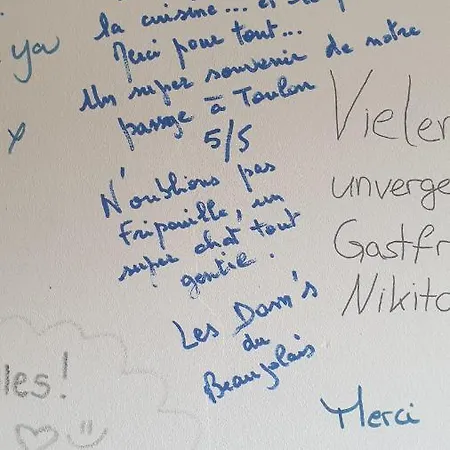 la cuisine.... et
Merci pour tout...
Un super souvenir de notre
passage à Toulon
5/5
N'oublions pas
Fripouille, un
super chat tout
gentil.
Les Dom's
du
Beaujolais
you
Vieler
unverge
Gastfr
Nikito
les!
Merci